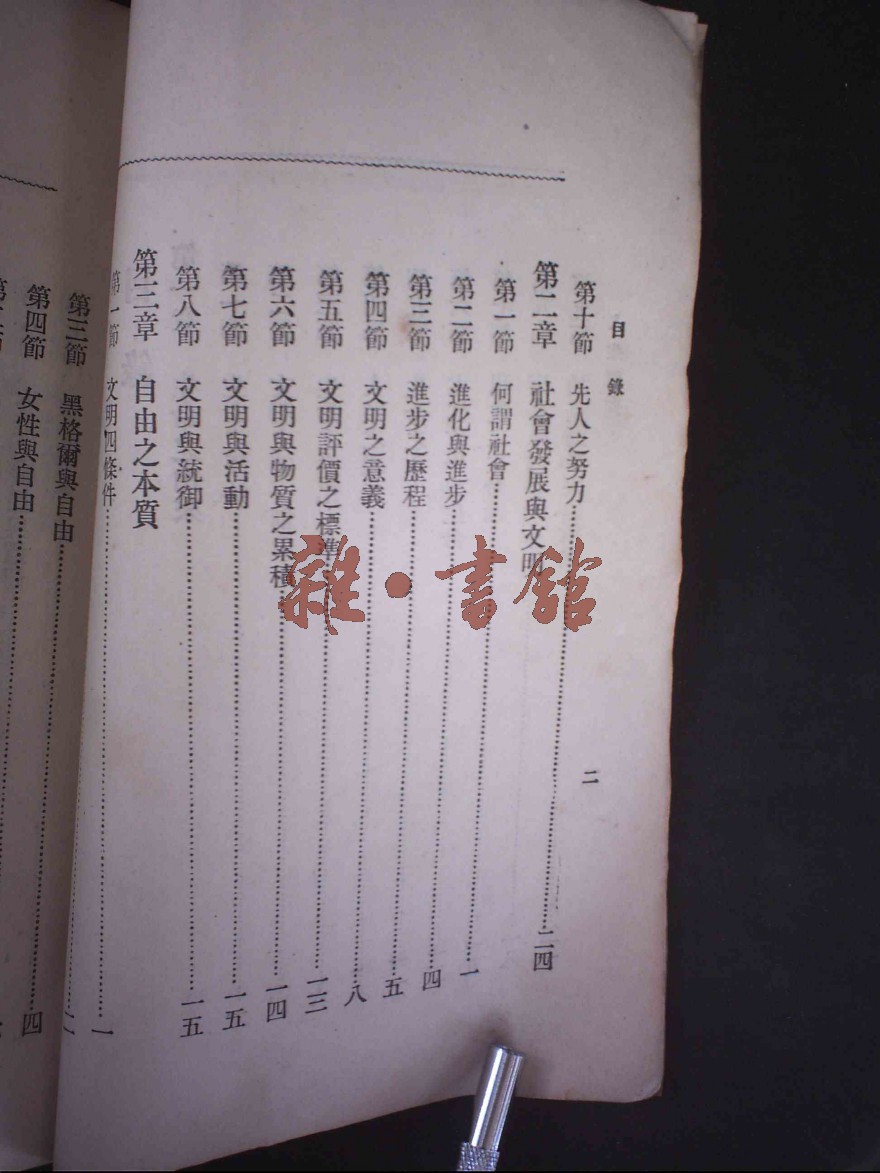 目錄
二
第十節 先人之努力……二四
第二章 社會發展與文明
第一節 何謂社會……一
第二節 進化與進步……四
第三節 進步之歷程……五
第四節 文明之意義……八
第五節 文明評價之標準……一三
第六節 文明與物質之累積……一四
第七節 文明與活動……一五
第八節 文明與統御……一五
第三章 自由之本質
第一節 文明四條件……一
第三節 黑格爾與自由……
第四節 女性與自由……四
雜·書館